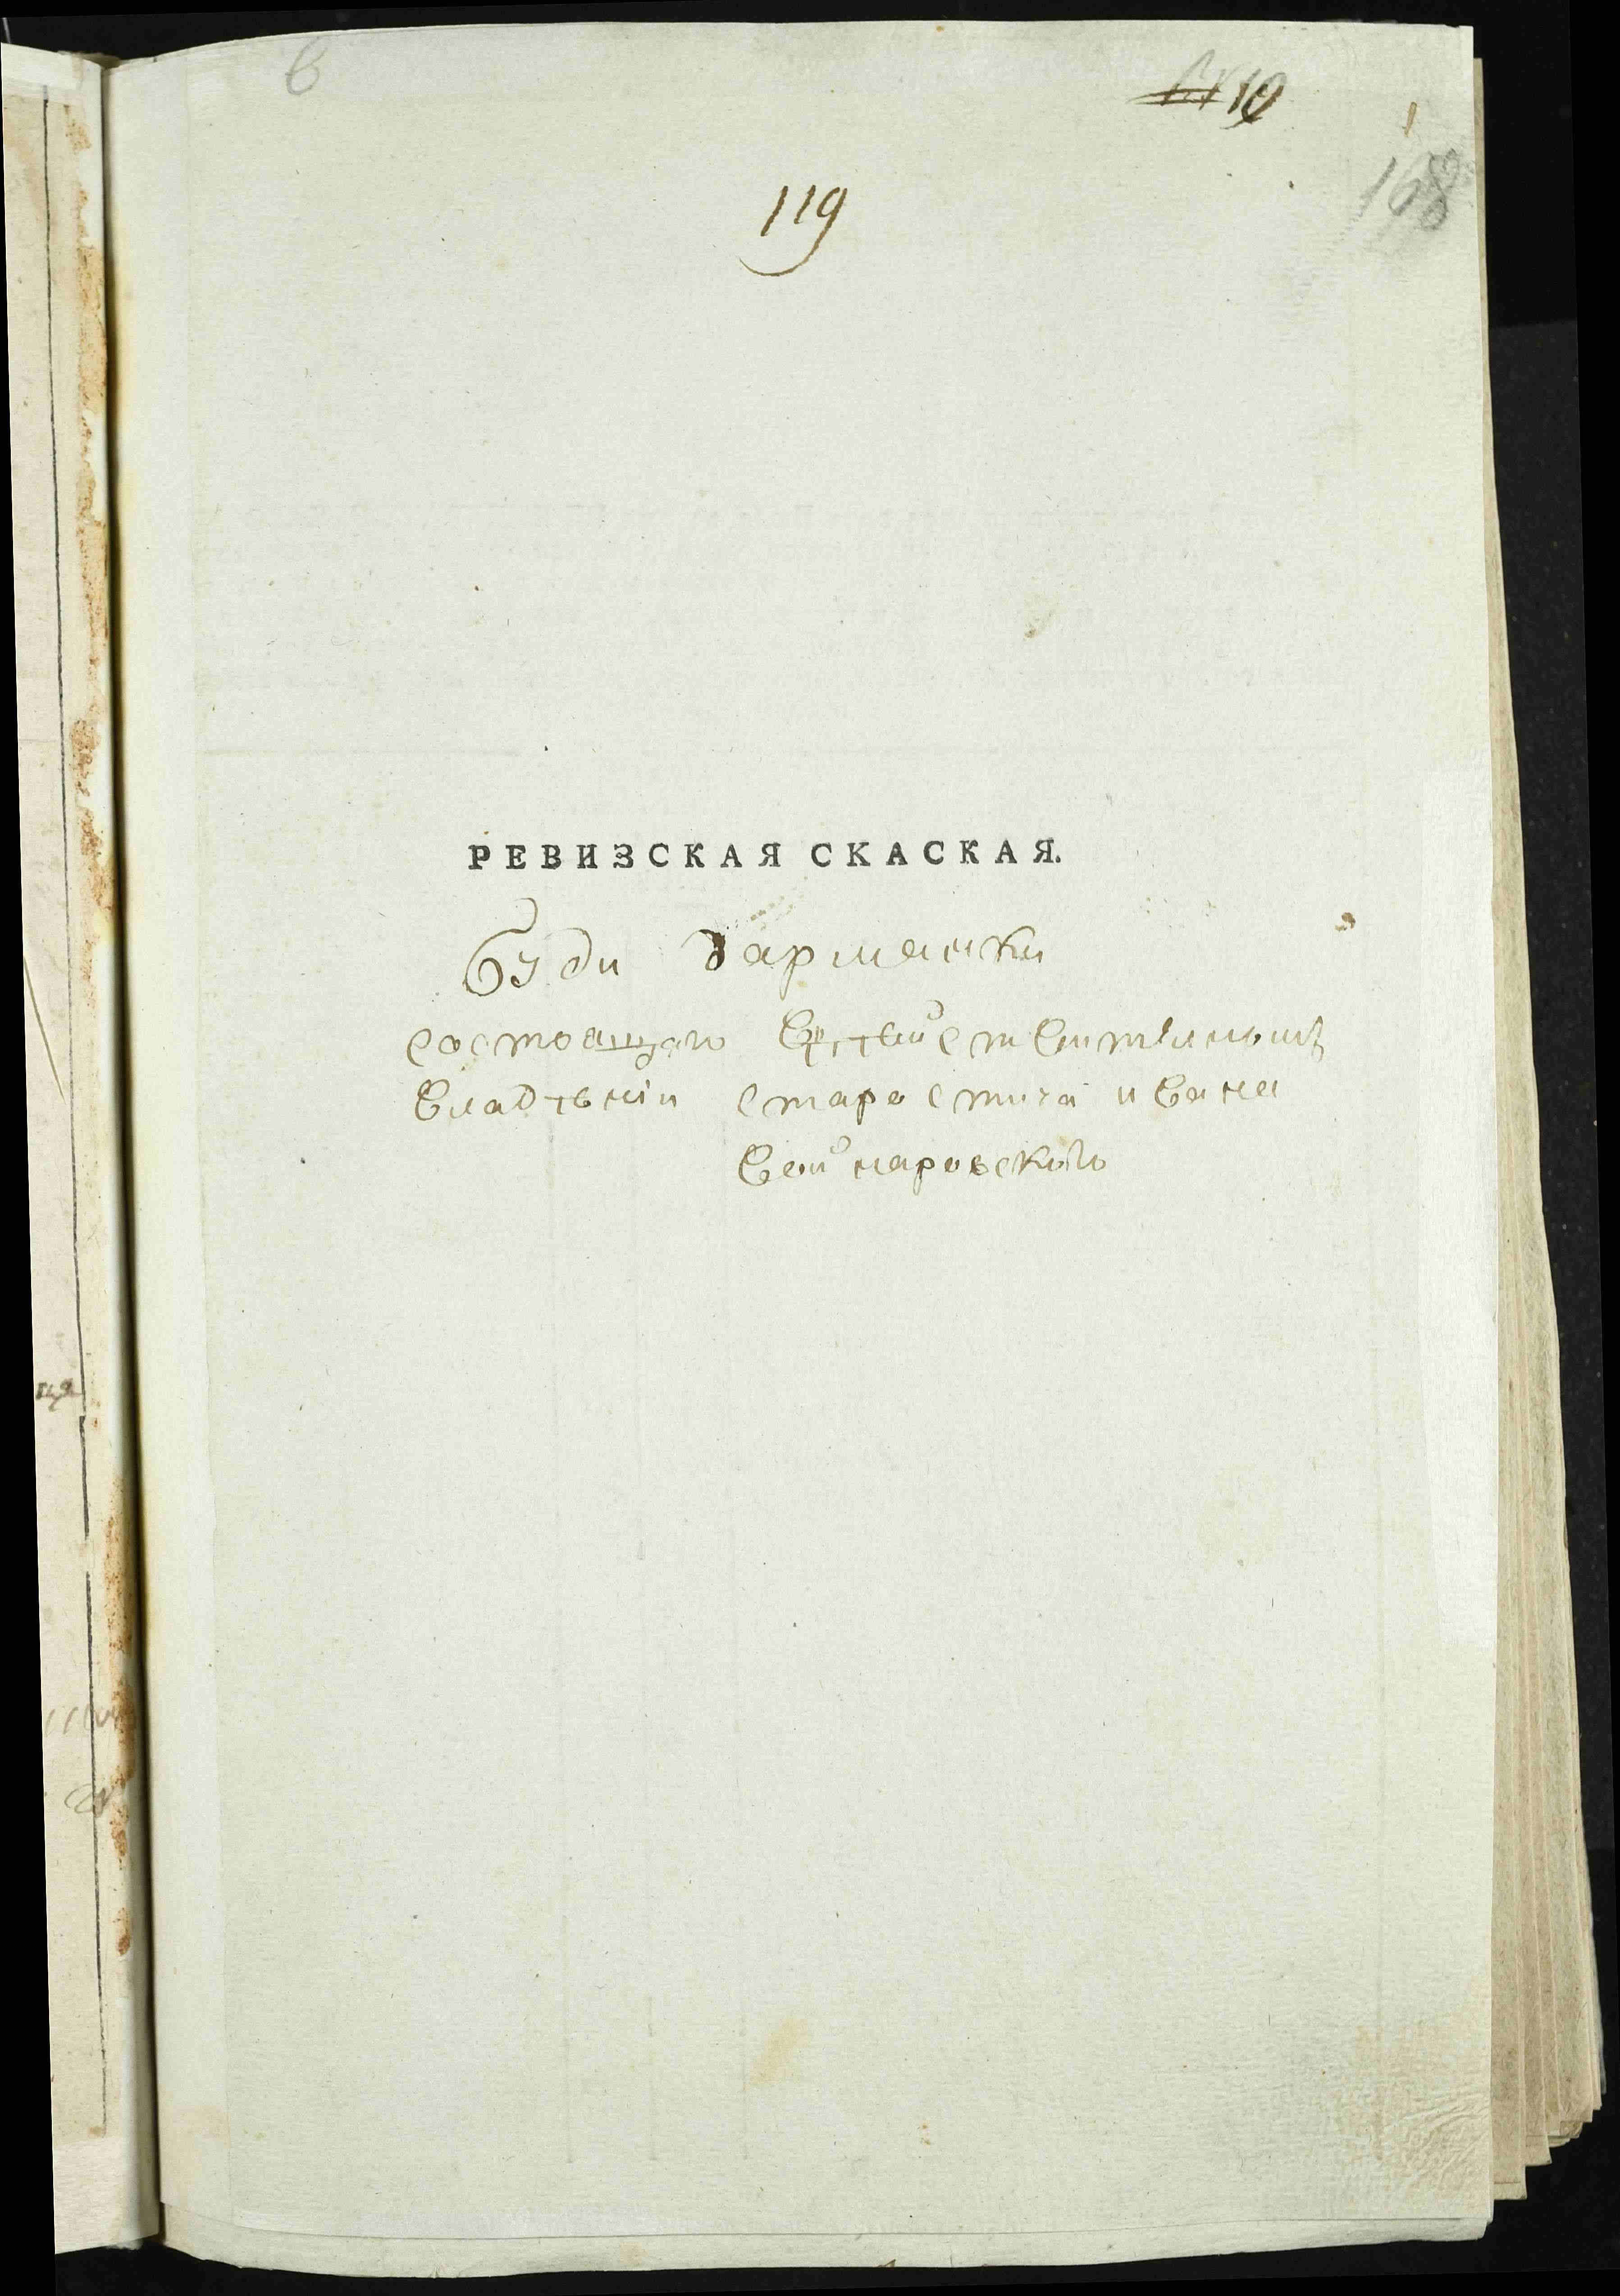 10
168
119
РЕВИЗСКАЯ СКАСКАЯ.
Буди Гармански
состоящаго
владѣнии старостича ивана
войнаровского